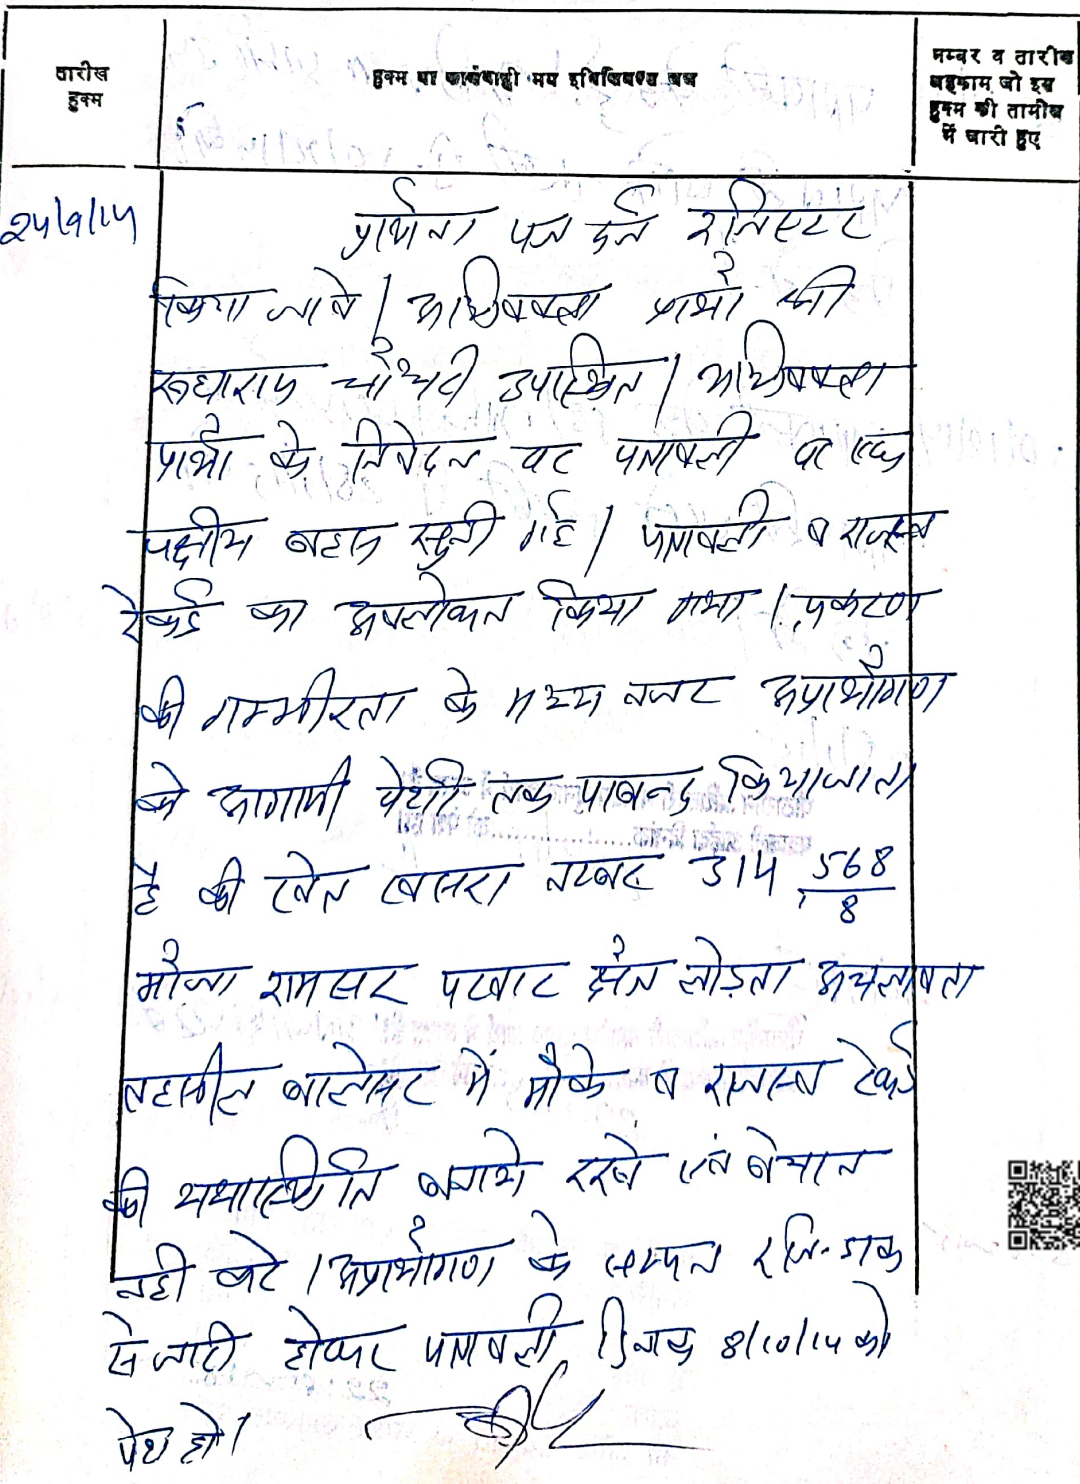 तारीख
हुक्म
हुक्म या कार्यवाही मय इनिशियल्स जज
नम्बर व तारीख
अहकाम जो इस
हुक्म की तामील
में जारी हुए
25/9/14
प्रार्थना पत्र दर्ज रजिस्टर
किया जावे। अधिवक्ता प्रार्थी श्री
रूघाराम चौधरी उपस्थित। अधिवक्ता
प्रार्थी के निवेदन पर पत्रावली पर एक
पक्षीय बहस सुनी गई। पत्रावली व राजस्व
रेकर्ड का अवलोकन किया गया। प्रकरण
की गम्भीरता के मध्य नजर अप्रार्थीगण
को आगामी पेशी तक पाबन्द किया जाता
है की खेत खसरा नम्बर 314, 568/8
मौजा रामसर पटवार क्षेत्र लोड़ता अचलावता
तहसील बालेसर में मौके व राजस्व रेकर्ड
की यथास्थिति बनाये रखे एवं बेचान
नही करे। अप्रार्थीगण के सम्मन रजि. डाक
से जारी होकर पत्रावली दिनांक 8/10/14 को
पेश हो।